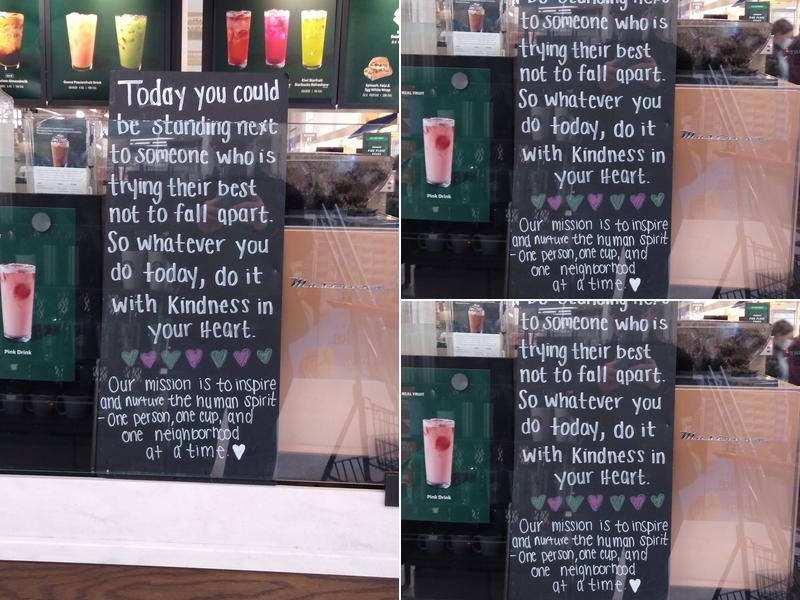 Today you could
be standing next
to someone who is
trying their best
not to fall apart.
So whatever you
do today, do it
with Kindness in
your Heart.
Our mission is to inspire
and nurture the human spirit
- One person, one cup, and
one neighborhood
at a time.
Pink Drink
to someone who is
trying their best
not to fall apart.
So whatever you
do today, do it
with Kindness in
your Heart.
Our mission is to inspire
and nurture the human spirit
- One person, one cup, and
one neighborhood
at a time.
REAL FRUIT
Pink Drink
be standing next
to someone who is
trying their best
not to fall apart.
So whatever you
do today, do it
with Kindness in
your Heart.
Our mission is to inspire
and nurture the human spirit
- One person, one cup, and
one neighborhood
at a time.
REAL FRUIT
Pink Drink